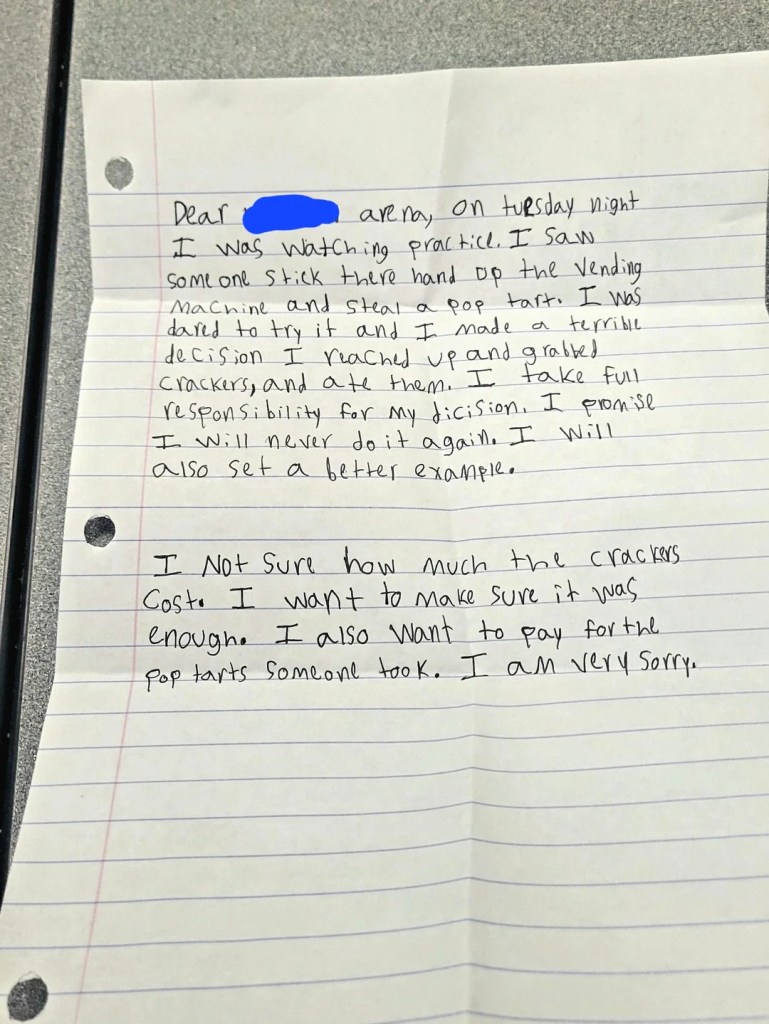 Dear arena, on tuesday night
I was watching practice. I saw
someone stick there hand up the vending
machine and steal a pop tart. I was
dared to try it and I made a terrible
decision I reached up and grabbed
crackers, and ate them. I take full
responsibility for my dicision. I promise
I will never do it again. I will
also set a better example.
I Not sure how much the crackers
cost. I want to make sure it was
enough. I also want to pay for the
pop tarts someone took. I am very sorry.